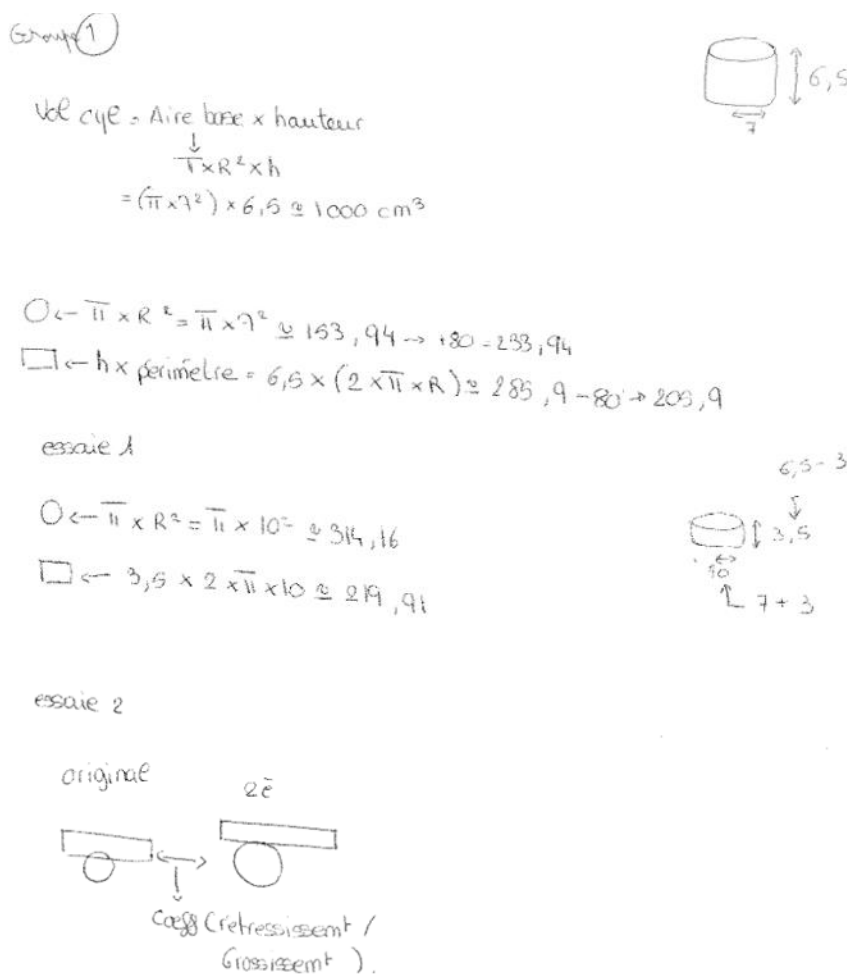 Groupe 1
6,5
7
Vol cyl = Aire base x hauteur
↓
π x R² x h
= (π x 7²) x 6,5 ≃ 1000 cm³
O ← π x R² = π x 7² ≃ 153,94 → +80 = 233,94
□ ← h x périmètre = 6,5 x (2 x π x R) ≃ 285,9 - 80 → 205,9
essaie 1
6,5 - 3
↓
O ← π x R² = π x 10² ≃ 314,16
3,5
□ ← 3,5 x 2 x π x 10 ≃ 219,91
10
7 + 3
essaie 2
original
2è
Coeff (rétressissemt /
Grossissemt ).